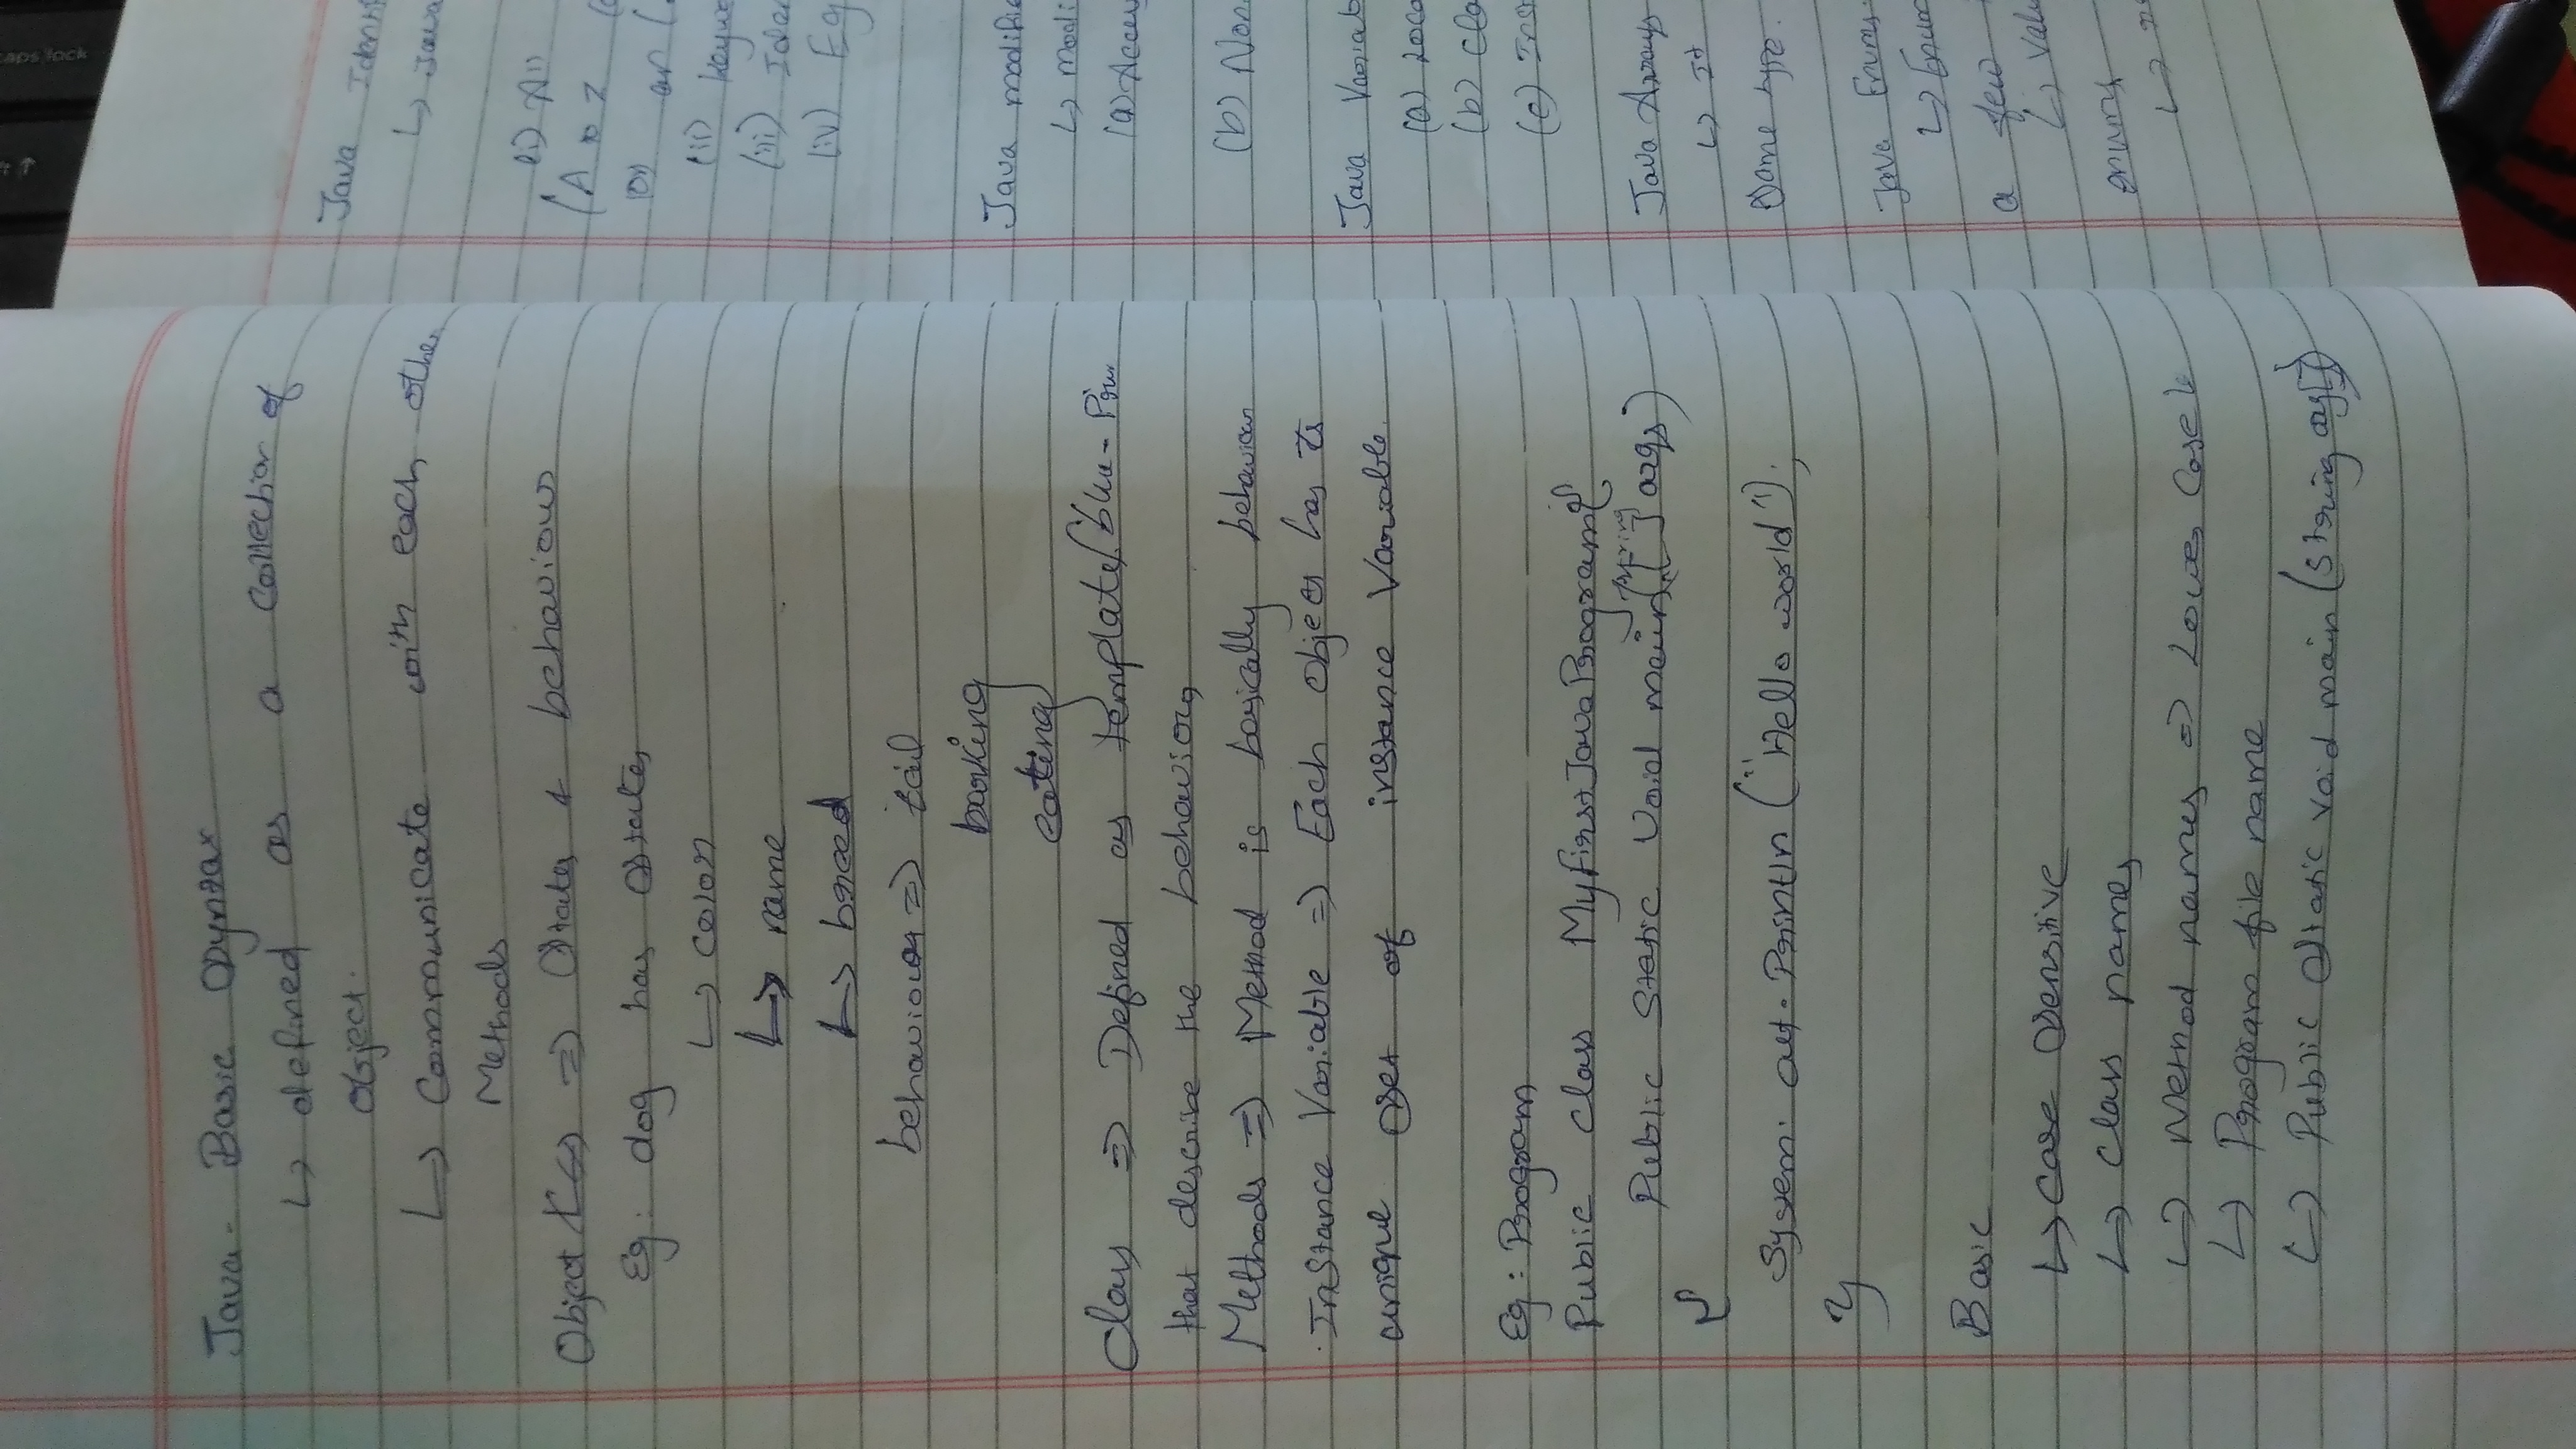 Java - Basic Syntax
↳ defined as a collection of
object.
↳ Communicate with each other
Methods
Object ⇒ States & behaviours
Eg: dog has states
↳ color
↳ name
↳ breed
behaviour ⇒ tail
barking
eating
Class ⇒ Defined as template/blue-
that describe the behaviors
Methods ⇒ Method is basically behaviour
Instance Variable ⇒ Each object has its
unique set of instance Variable.
Eg: Program
Public class MyFirstJavaProgram{
Public Static Void main ([] args)
{
System.out.Println ("Hello world");
}
Basic
↳ Case Sensitive
↳ Class names
↳ Method names ⇒ Lower Case
↳ Program file name
↳ Public Static void main (String args[])
Java
↳ Java
(i) All
(A to Z
(or) an
(ii)
(iii)
(iv) Eg
Java
↳
(a)
(b)
Java
(a)
(b)
(c)
Java Arrays
↳ It
Same type.
Java Enums
↳ Enum
a few
↳
enums
↳
caps lock